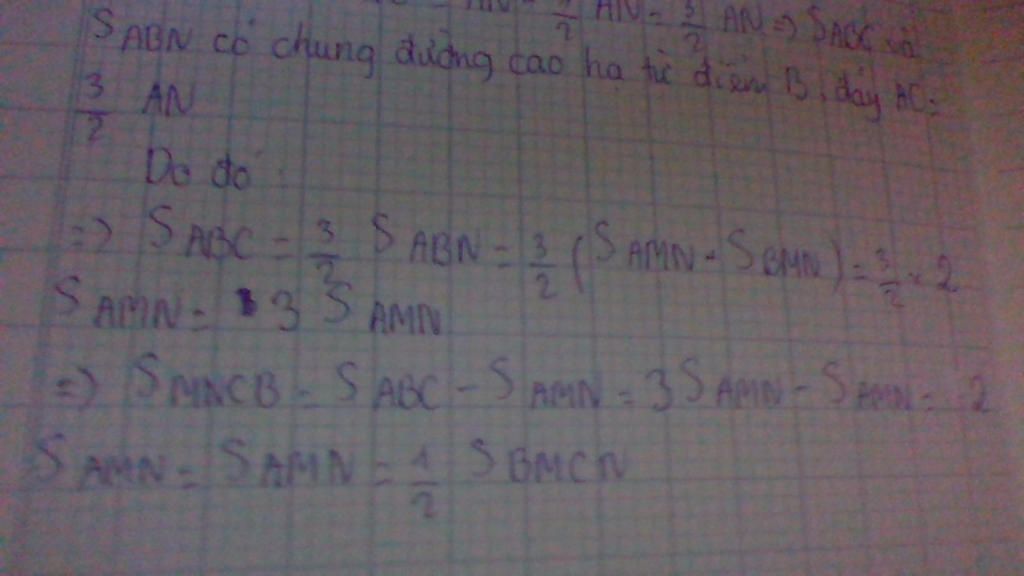 = AN - 1/2 AN = 3/2 AN => SABC và
SABN có chung đường cao hạ từ điểm B, đáy AC =
3/2 AN
Do đó :
=> SABC = 3/2 SABN = 3/2 (SAMN - SBMN) = 3/2 × 2
SAMN = 3 SAMN
=> SMNCB = SABC - SAMN = 3 SAMN - SAMN = 2
SAMN = SAMN = 1/2 SBMCN